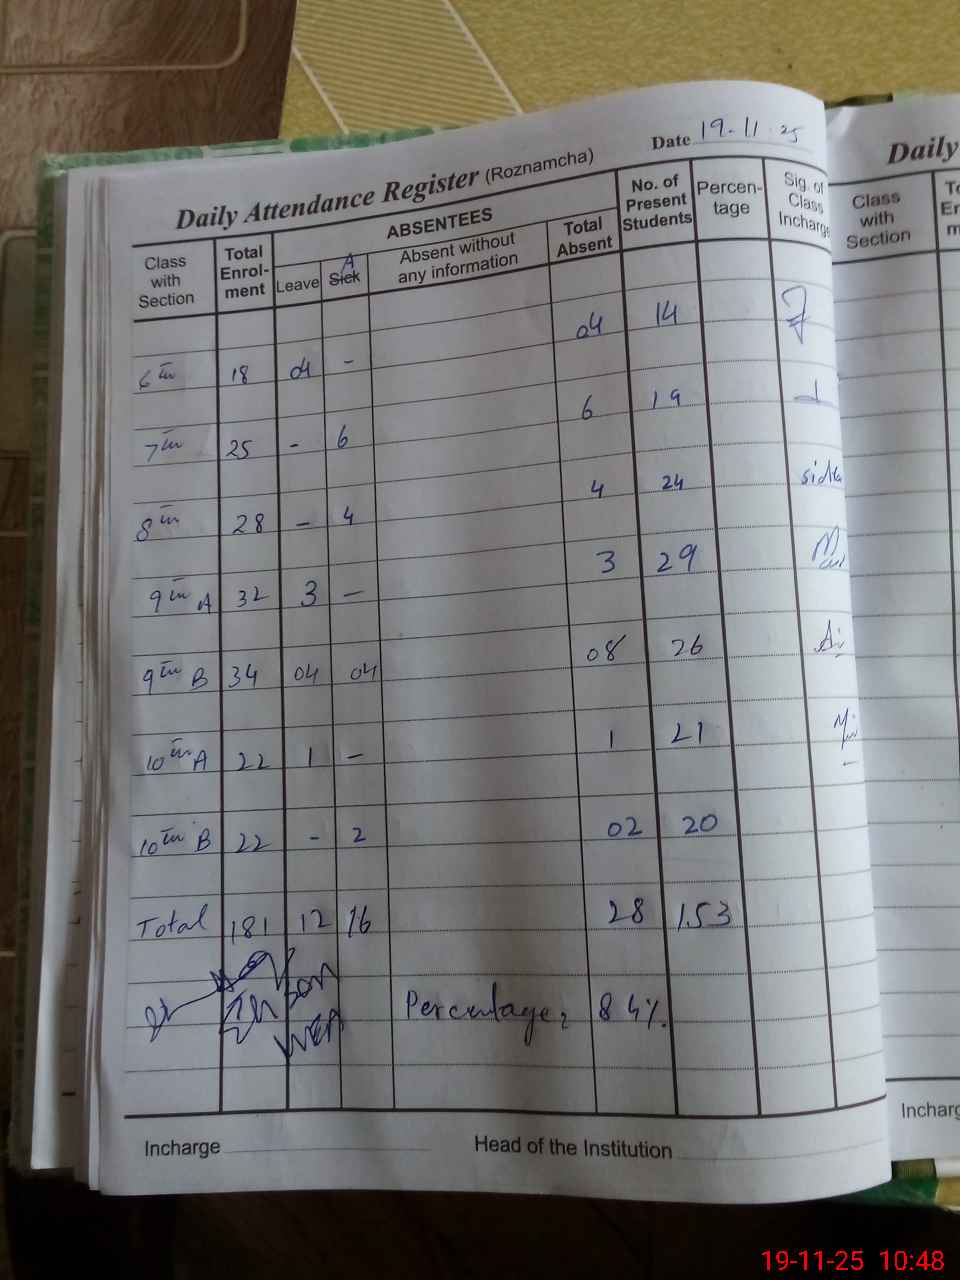 Date 19-11-25
Daily Attendance Register (Roznamcha)
Class with Section
Total Enrol-ment
ABSENTEES
Leave
Sick A
Absent without any information
Total Absent
No. of Present Students
Percen-tage
Sig. of Class Incharge
6th 18 04 - 04 14
7th 25 - 6 6 19
8th 28 - 4 4 24
9th A 32 3 - 3 29
9th B 34 04 04 08 26
10th A 22 1 - 1 21
10th B 22 - 2 02 20
Total 181 12 16 28 153
Percentage, 84%.
Incharge
Head of the Institution
Daily
Class with Section
Incharg
19-11-25 10:48